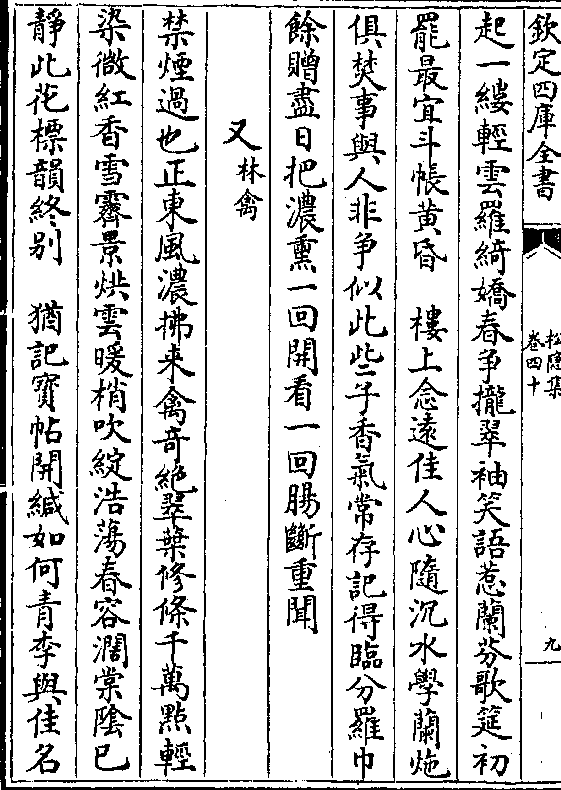 欽定四庫全書
松隱集
卷四十
九
起一縷輕雲羅綺嬌春争攏翠袖笑語惹蘭芬歌筵初
罷最宜斗帳黄昏　樓上念遠佳人心隨沉水學蘭炧
俱焚事與人非争似此些子香氣常存記得臨分羅巾
餘贈盡日把濃熏一回開看一回腸斷重聞
又林禽
禁煙過也正東風濃拂来禽奇絶翠葉修條千萬點輕
染微紅香雪霽景烘雲暖梢吹綻浩蕩春容濶棠陰已
靜此花標韻終别　猶記寳帖開緘如何青李與佳名